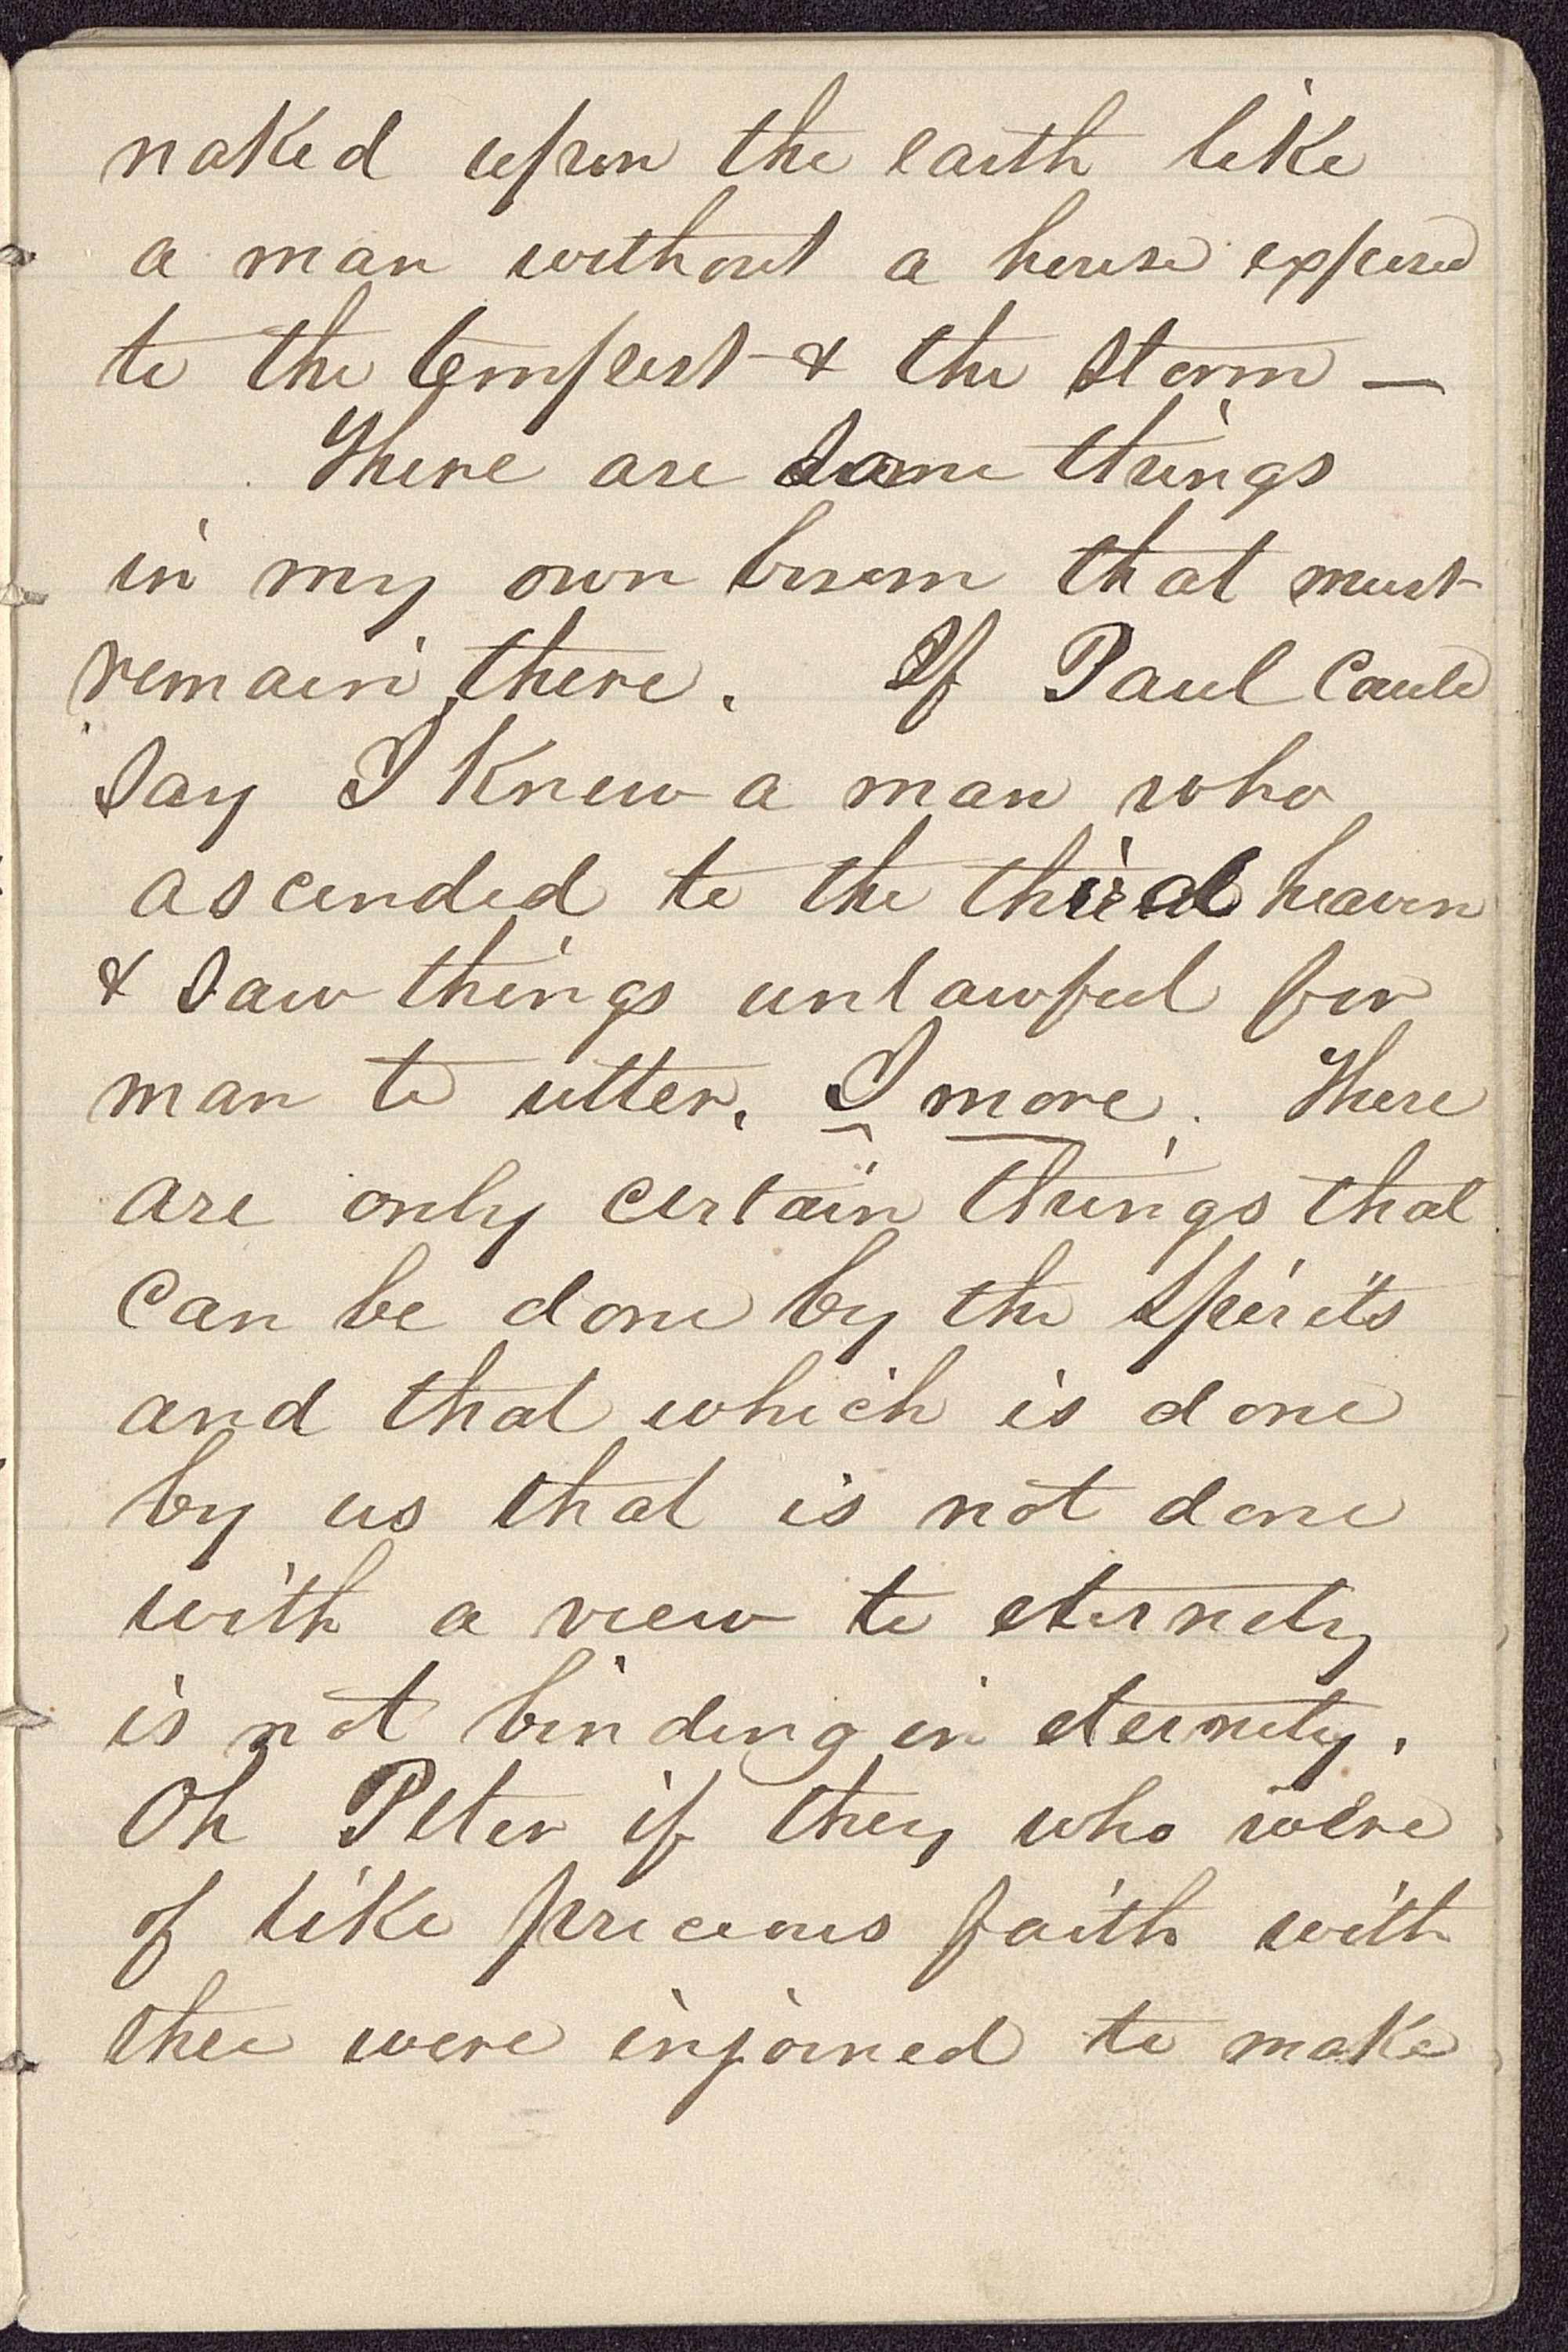 naked upon the earth like
a man without a house exposed
to the tempest & the storm —
There are some things
in my own bosom that must
remain there. If Paul Could
Say I Knew a man who
ascended to the third heaven
& Saw things unlawful for
man to utter. I more. There
are only certain things that
Can be done by the Spirits
and that which is done
by us that is not done
with a view to eternity
is not binding in eternity.
Oh Peter if they who were
of like precious faith with
thee were injoined to make